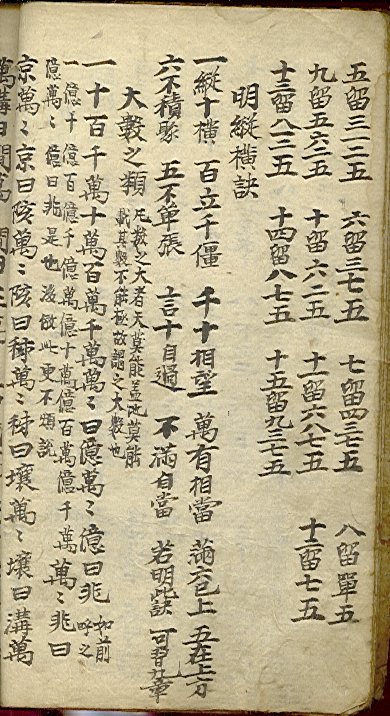 五留三一二五 六留三七五 七留四三七五 八留單五
九留五六二五 十留六二五 十一留六八七五 十二留七五
十三留八一二五 十四留八七五 十五留九三七五
明縱橫訣
一縱十橫 百立千僵 千十相望 萬有相當 滿六已上 五在上方
六不積聚 五不單張 言十自過 不滿自當 若明此訣 可習九章
大數之類 凡數之大者天莫能盖地莫能
載其數不能極故謂之大數也
一十百千萬十萬百萬千萬萬〻曰億萬〻億曰兆 如前呼之
一億十億百億千億萬億十萬億百萬億千萬億萬〻億曰兆是也後倣此更不煩說 萬〻兆曰
京萬〻京曰陔萬〻陔曰秭萬〻秭曰壤萬〻壤曰溝萬
萬溝曰澗萬